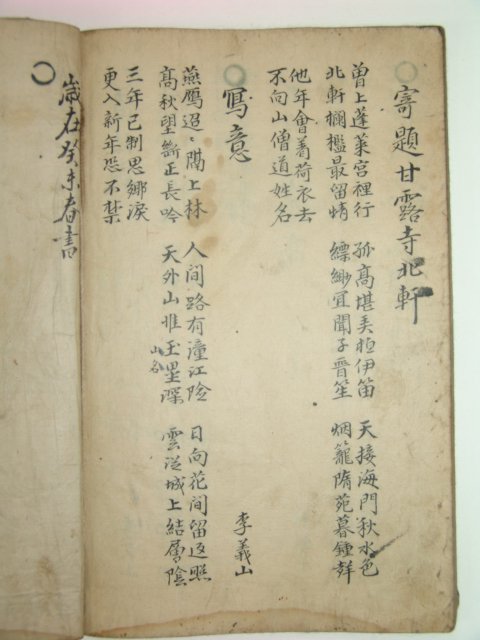 寄題甘露寺北軒
曾上蓬萊宮裡行 孤高堪弄桓伊笛 天接海門秋水色
北軒欄檻最留情 縹緲宜聞子晉笙 烟籠隋苑暮鍾聲
他年會着荷衣去
不向山僧道姓名
寫意 李義山
燕鴈迢〻隔上林 人间路有潼江险 日向花间留返照
高秋望斷正長吟 天外山惟玉壘深 雲從城上結層陰
山名
三年已制思鄉淚
更入新年恐不禁
歲在癸未春書